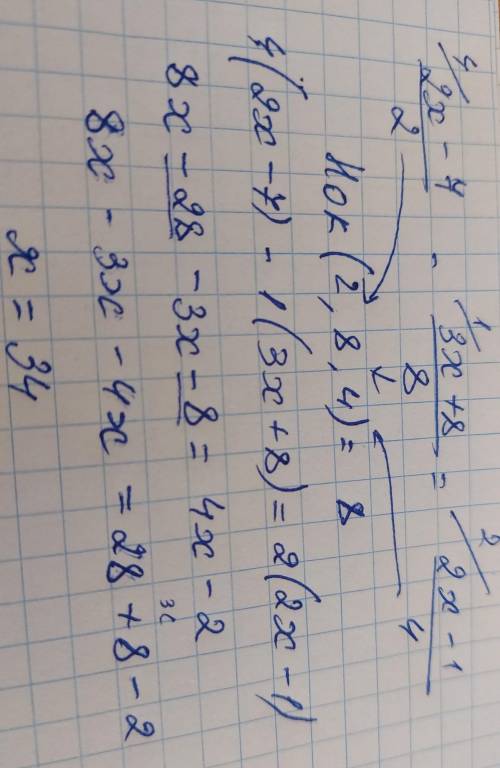 4/ (2x - 7)/2 - 1/ (3x + 8)/8 = 2/ (2x - 1)/4
Нок (2, 8, 4) = 8
4(2x - 7) - 1(3x + 8) = 2(2x - 1)
8x - 28 - 3x - 8 = 4x - 2
36
8x - 3x - 4x = 28 + 8 - 2
x = 34